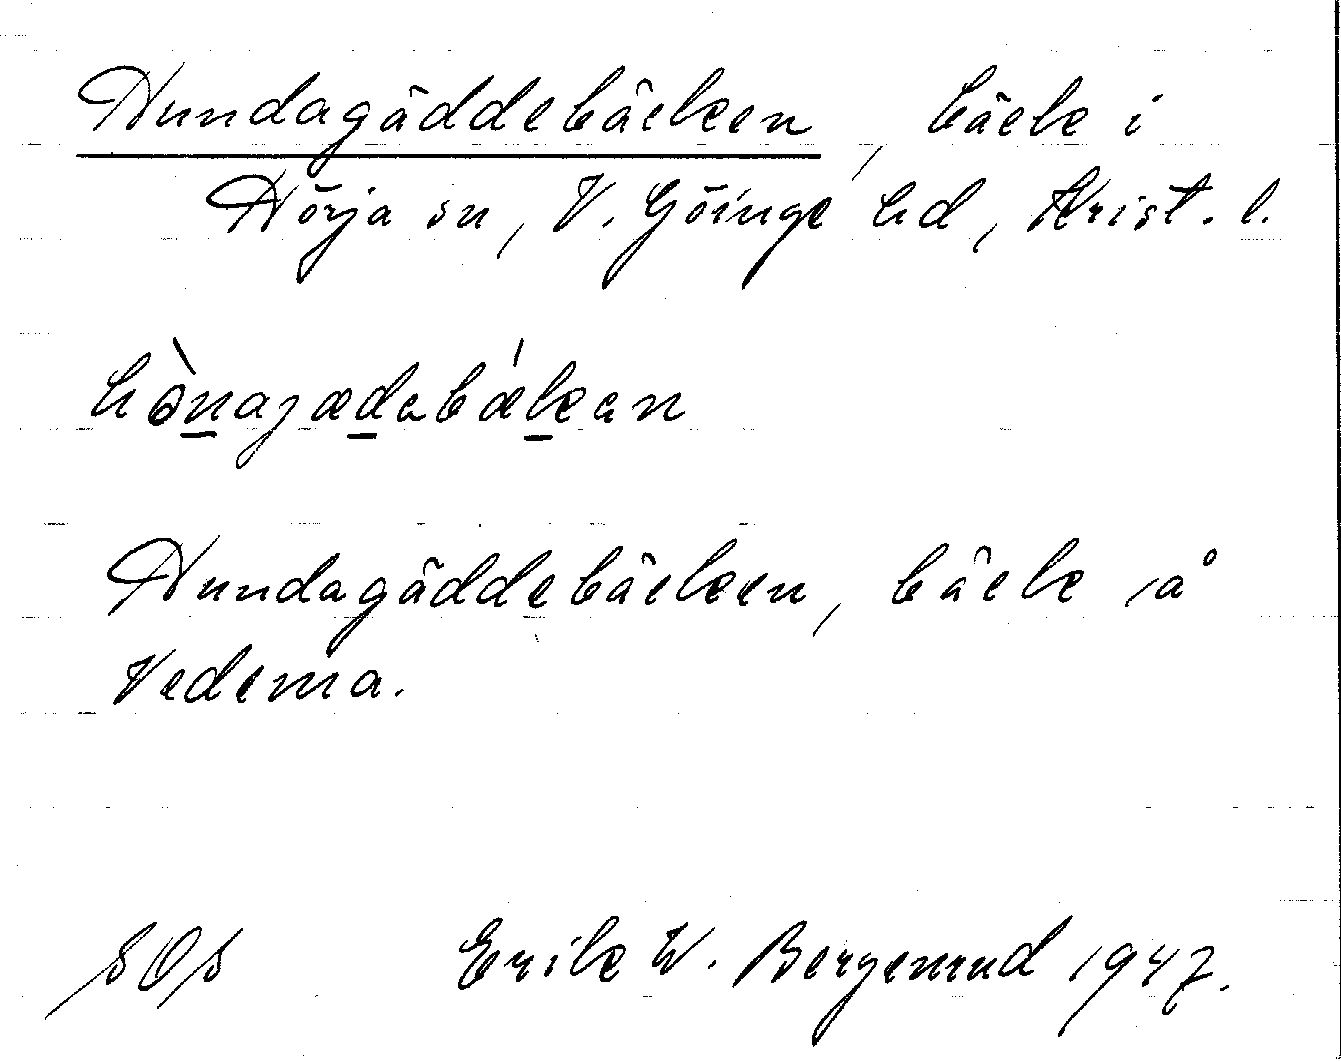 Hundagäddebäcken, bäck i
Nörja sn, V. Göinge hd, Krist. l.
hònajædabǽkan
Hundagäddebäcken, bäck på
Vedema.
SOS Erik W. Bergenrud 1947.